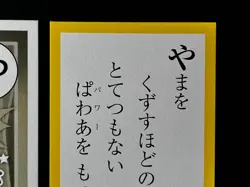 やまを
くずすほどの
とてつもない
ぱわあをも
パワー